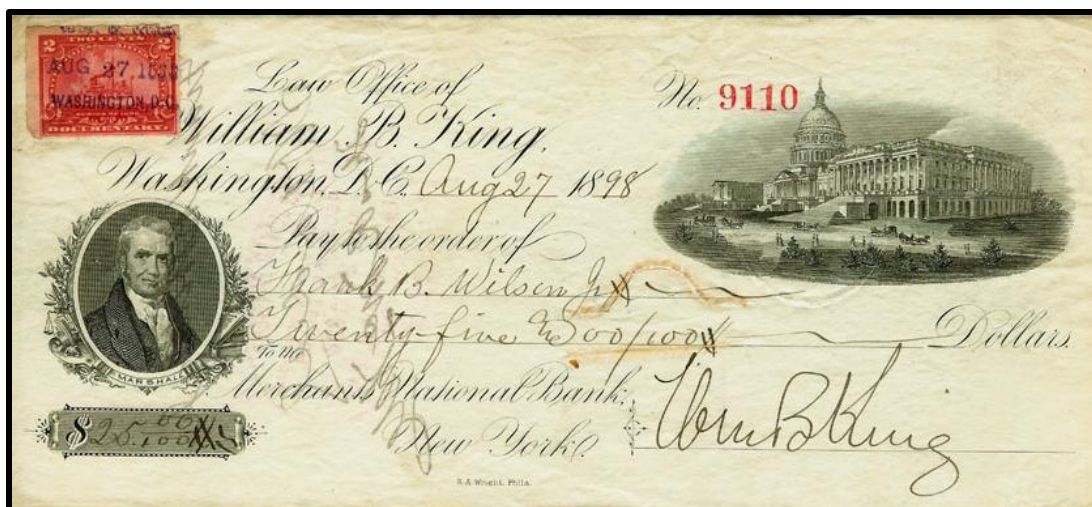 TWO CENTS
2 2
AUG 27 1898
WASHINGTON, D.C.
DOCUMENTARY.
Law Office of
No. 9110
William B. King,
Washington, D.C. Aug 27 1898
Pay to the order of
Frank B. Wilson Jr
Twenty-five & 00/100 Dollars.
To the
MARSHALL
Merchants National Bank,
$25.00/100
New York.
Wm B King
S.A. Wright, Phila.